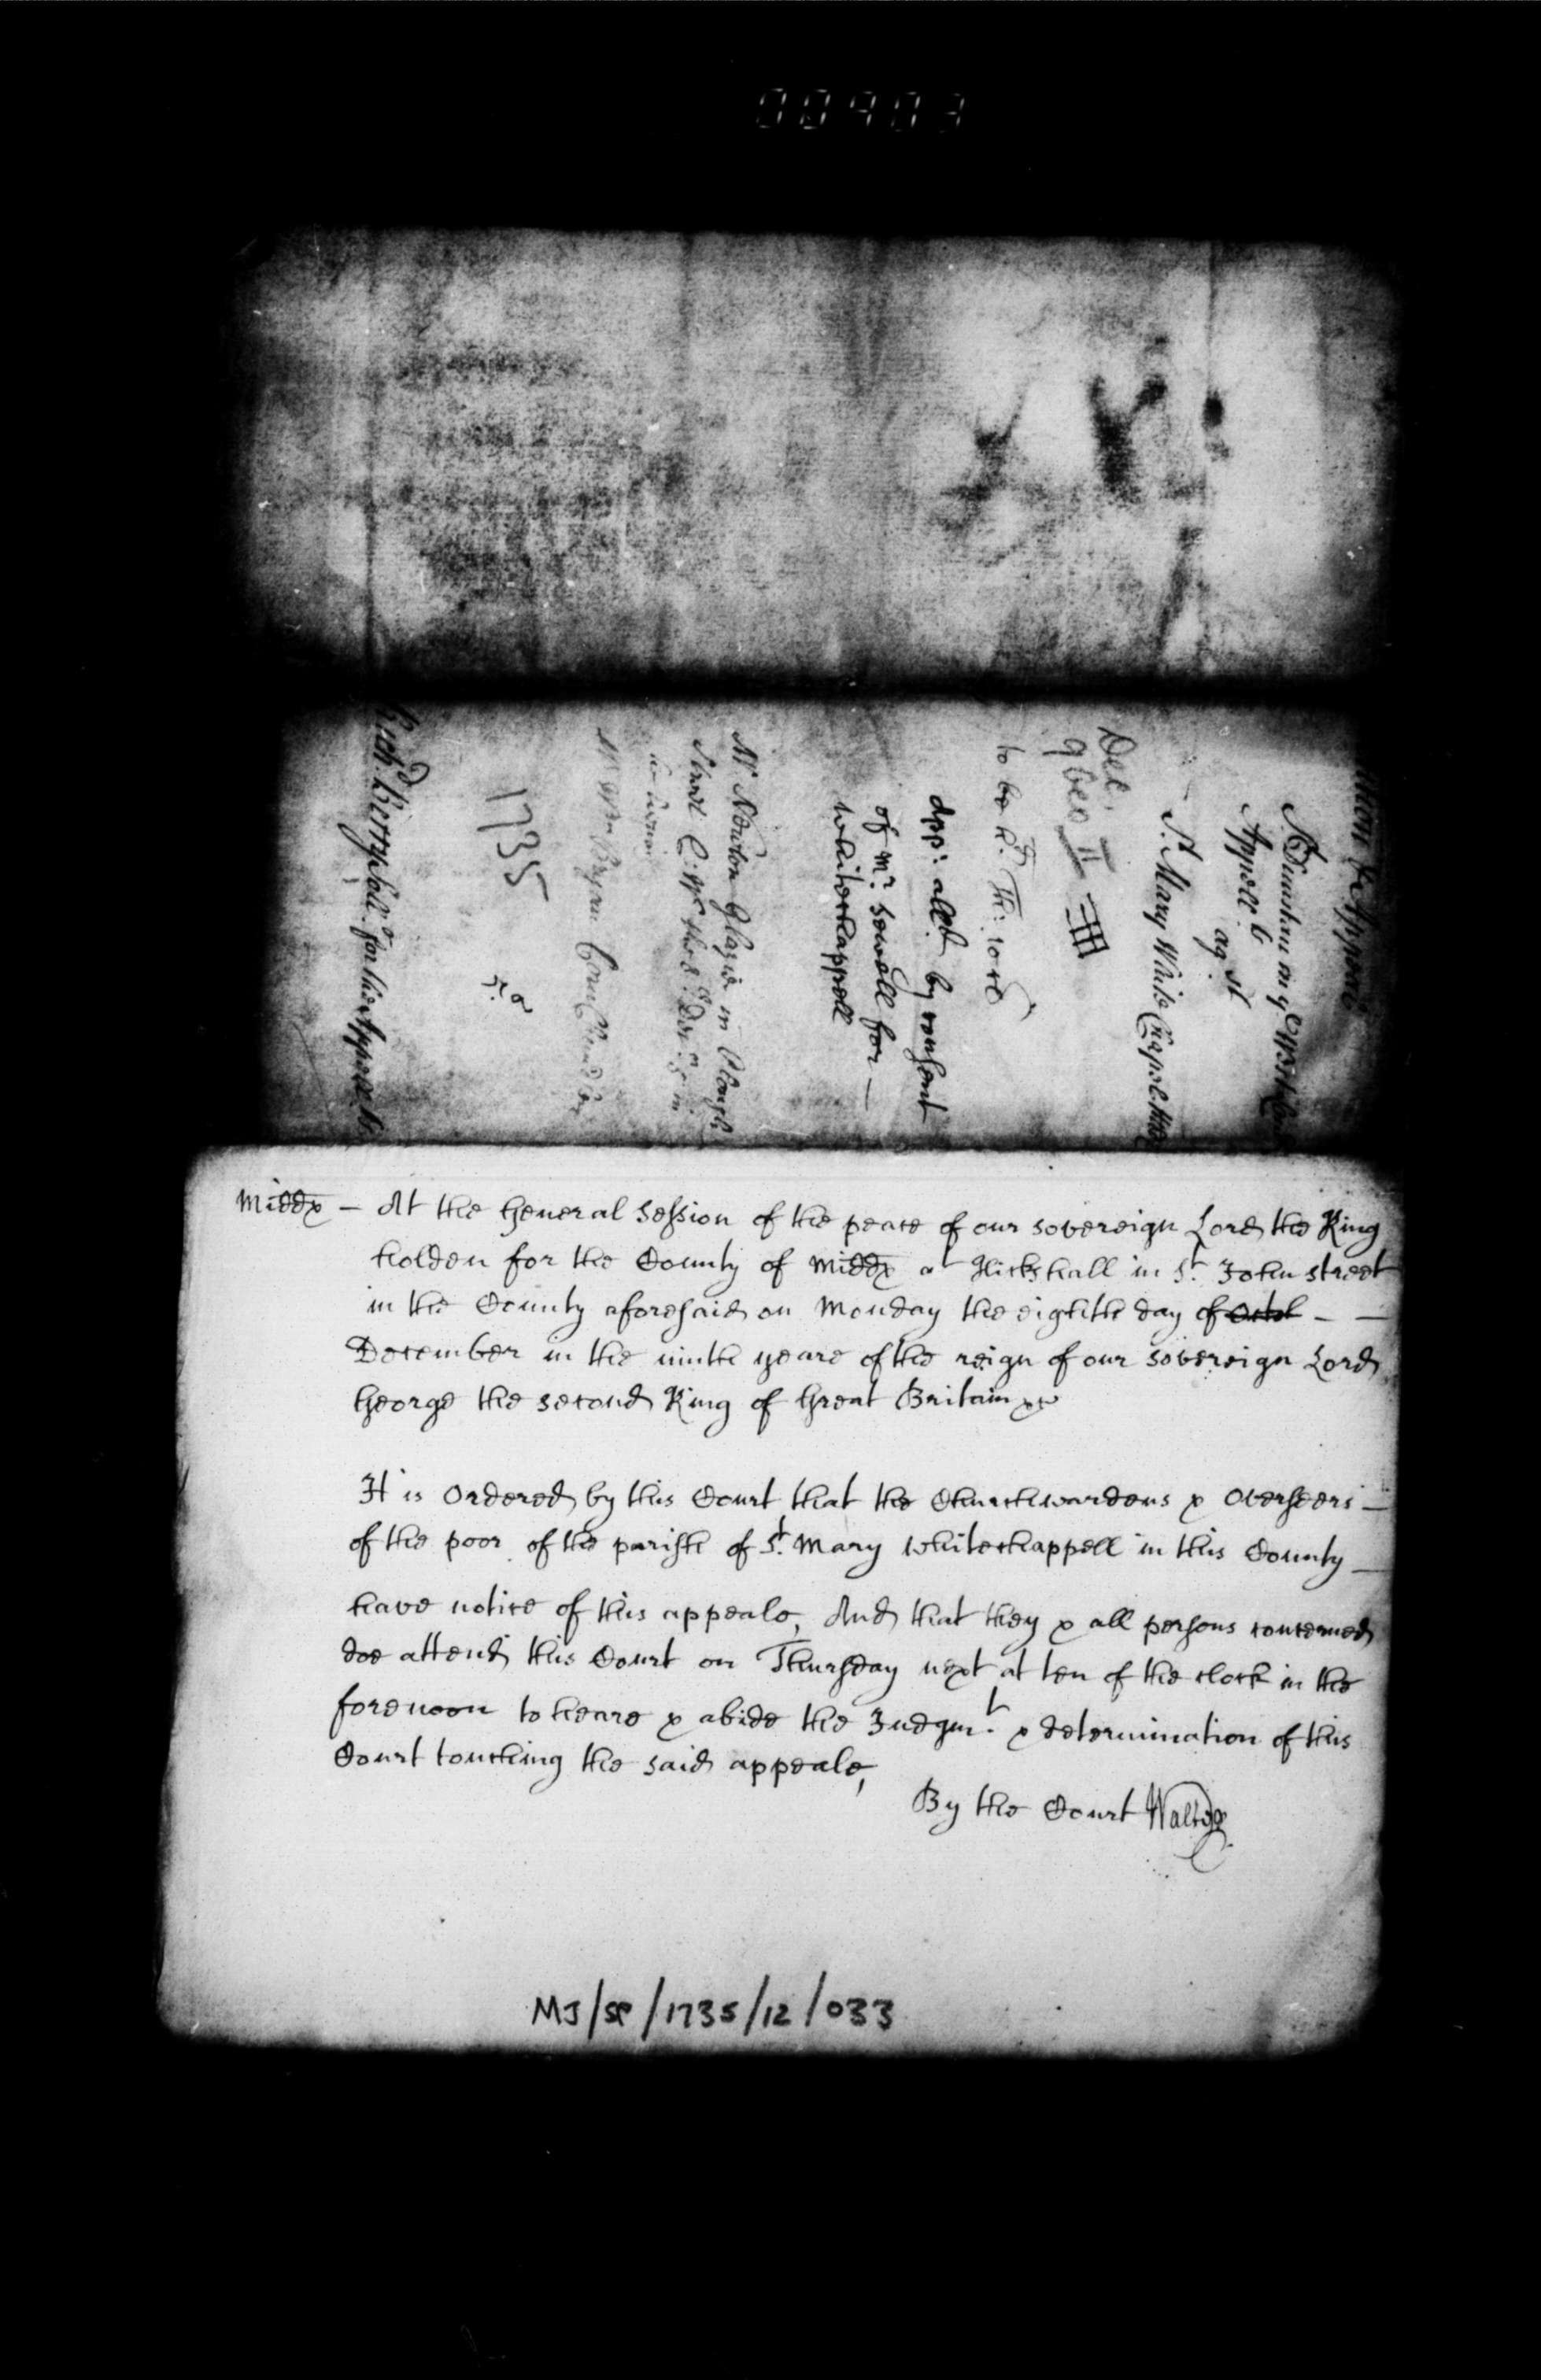 00903
Petition & Appeal
St. Dunstan in ye West
Appell.ts
ag.st
St. Mary White Chapel
Dec.
9ber II
to be h.d Th: 10 cl
App: all.d by consent
of mr. sewell for —
whitechappell
Mr. Newton Glazier in Plough
1735
Rich.d Berry Soll.r for the Appell.ts
Middx — At the General Session of the peace of our sovereign Lord the King
holden for the County of Middx at Hickshall in St. John street
in the County aforesaid on Monday the eighth day of Octob — —
December in the ninth yeare of the reign of our sovereign Lord
George the second King of Great Britain &c
It is Ordered by this Court that the Churchwardens & Overseers —
of the poor of the parish of St. Mary Whitechappell in this County —
have notice of this appeale, And that they & all persons concerned
doe attend this Court on Thursday next at ten of the clock in the
forenoon to heare & abide the Judgmt. & determination of this
Court touching the said appeale,
By the Court Walter
MJ/SP/1735/12/033